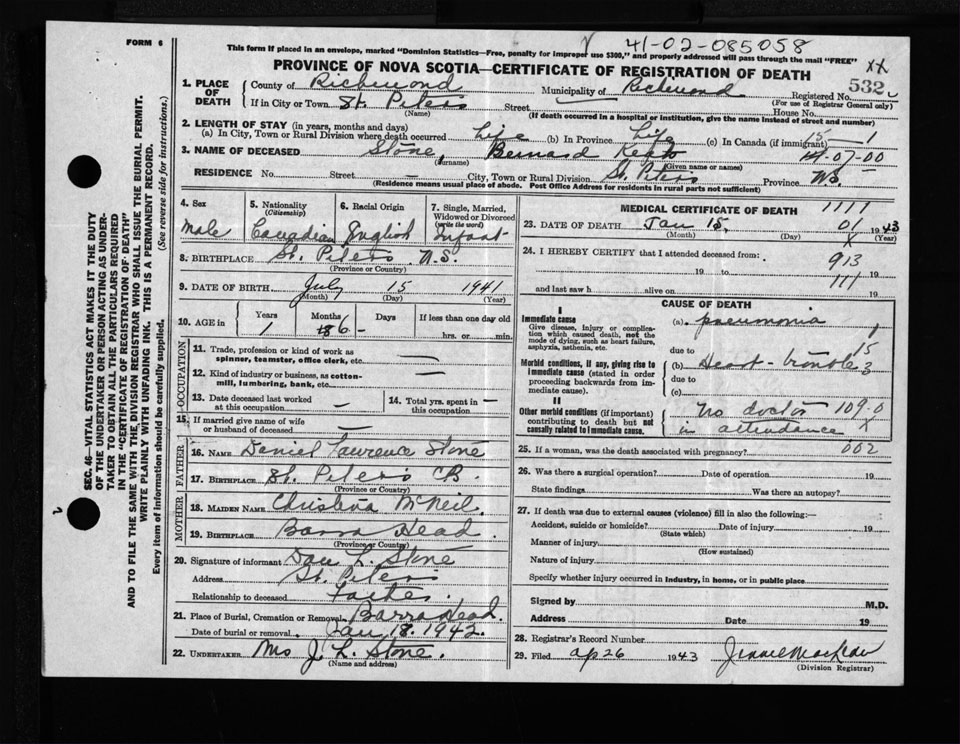 FORM 6
41-02-085058
This form if placed in an envelope, marked "Dominion Statistics—Free, penalty for improper use $300," and properly addressed will pass through the mail "FREE"
PROVINCE OF NOVA SCOTIA—CERTIFICATE OF REGISTRATION OF DEATH
XX
1. PLACE OF DEATH
County of Richmond
Municipality of Richmond
Registered No. 532
(For use of Registrar General only)
If in City or Town St. Peters Street House No.
(Name)
(If death occurred in a hospital or institution, give the name instead of street and number)
2. LENGTH OF STAY (in years, months and days)
(a) In City, Town or Rural Division where death occurred Life (b) In Province Life (c) In Canada (if immigrant) 15 1
3. NAME OF DECEASED Stone, Bernard
07-00
(Surname) (Given name or names)
RESIDENCE No. Street — City, Town or Rural Division St. Peters Province N.S.
(Residence means usual place of abode. Post Office Address for residents in rural parts not sufficient)
4. Sex
Male
5. Nationality
(Citizenship)
Canadian
6. Racial Origin
English
7. Single, Married, Widowed or Divorced
(write the word)
Infant
8. BIRTHPLACE St. Peters N.S.
(Province or Country)
9. DATE OF BIRTH July 15 1941
(Month) (Day) (Year)
10. AGE in Years Months Days If less than one day old
1 6 - hrs. or min.
OCCUPATION
11. Trade, profession or kind of work as spinner, teamster, office clerk, etc. —
12. Kind of industry or business, as cotton-mill, lumbering, bank, etc. —
13. Date deceased last worked at this occupation —
14. Total yrs. spent in this occupation —
15. If married give name of wife or husband of deceased —
FATHER
16. NAME Daniel Lawrence Stone
17. BIRTHPLACE St. Peters CB.
(Province or Country)
MOTHER
18. MAIDEN NAME Christena McNeil
19. BIRTHPLACE Barra Head.
(Province or Country)
20. Signature of informant Dan L. Stone
Address St. Peters
Relationship to deceased Father
21. Place of Burial, Cremation or Removal Barra Head.
Date of burial or removal Jan 18. 1942.
22. UNDERTAKER Mrs J. L. Stone.
(Name and address)
MEDICAL CERTIFICATE OF DEATH
1111
23. DATE OF DEATH Jan 15, 01 1943
(Month) (Day) X (Year)
24. I HEREBY CERTIFY that I attended deceased from:
913
19 to 19
111
and last saw h alive on 19
CAUSE OF DEATH
Immediate cause
Give disease, injury or complication which caused death, not the mode of dying, such as heart failure, asphyxia, asthenia, etc.
(a) pneumonia 1
due to 15
Morbid conditions, if any, giving rise to immediate cause (stated in order proceeding backwards from immediate cause).
(b) Heart trouble 3
due to
(c)
II
Other morbid conditions (if important) contributing to death but not causally related to immediate cause.
no doctor 109-0
in attendance X
25. If a woman, was the death associated with pregnancy? 002
26. Was there a surgical operation? Date of operation 19
State findings Was there an autopsy?
27. If death was due to external causes (violence) fill in also the following:—
Accident, suicide or homicide? Date of injury 19
(State which)
Manner of injury
(How sustained)
Nature of injury
Specify whether injury occurred in industry, in home, or in public place
Signed by M.D.
Address Date 19
28. Registrar's Record Number
29. Filed Ap 26 1943
(Division Registrar)
SEC. 46—VITAL STATISTICS ACT MAKES IT THE DUTY
OF THE UNDERTAKER OR PERSON ACTING AS UNDER-
TAKER TO OBTAIN ALL THE PARTICULARS REQUIRED
IN THE "CERTIFICATE OF REGISTRATION OF DEATH"
AND TO FILE THE SAME WITH THE DIVISION REGISTRAR WHO SHALL ISSUE THE BURIAL PERMIT.
WRITE PLAINLY WITH UNFADING INK. THIS IS A PERMANENT RECORD.
Every item of information should be carefully supplied. (See reverse side for instructions).